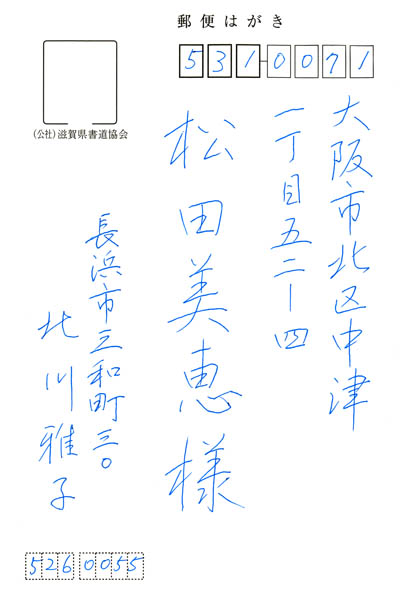 郵便はがき
531-0071
大阪市北区中津
一丁目五二ー四
松田美恵様
長浜市三和町三〇
北川雅子
526 0055
(公社)滋賀県書道協会